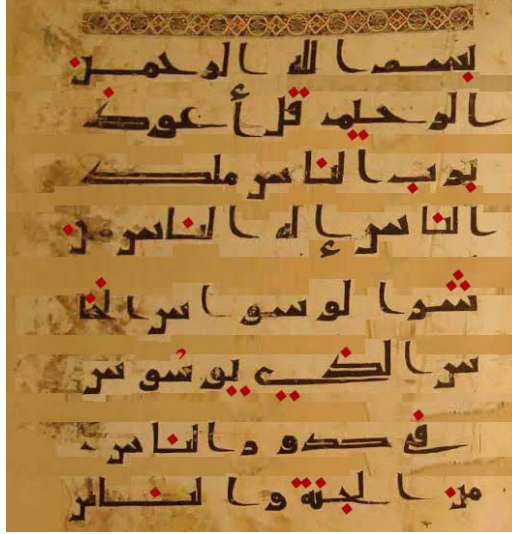 بسم الله الرحمن
الرحيم قل أعوذ
برب الناس ملك
الناس إله الناس من
شر الوسواس الخنا
س الذي يوسوس
في صدور الناس
من الجنة والناس